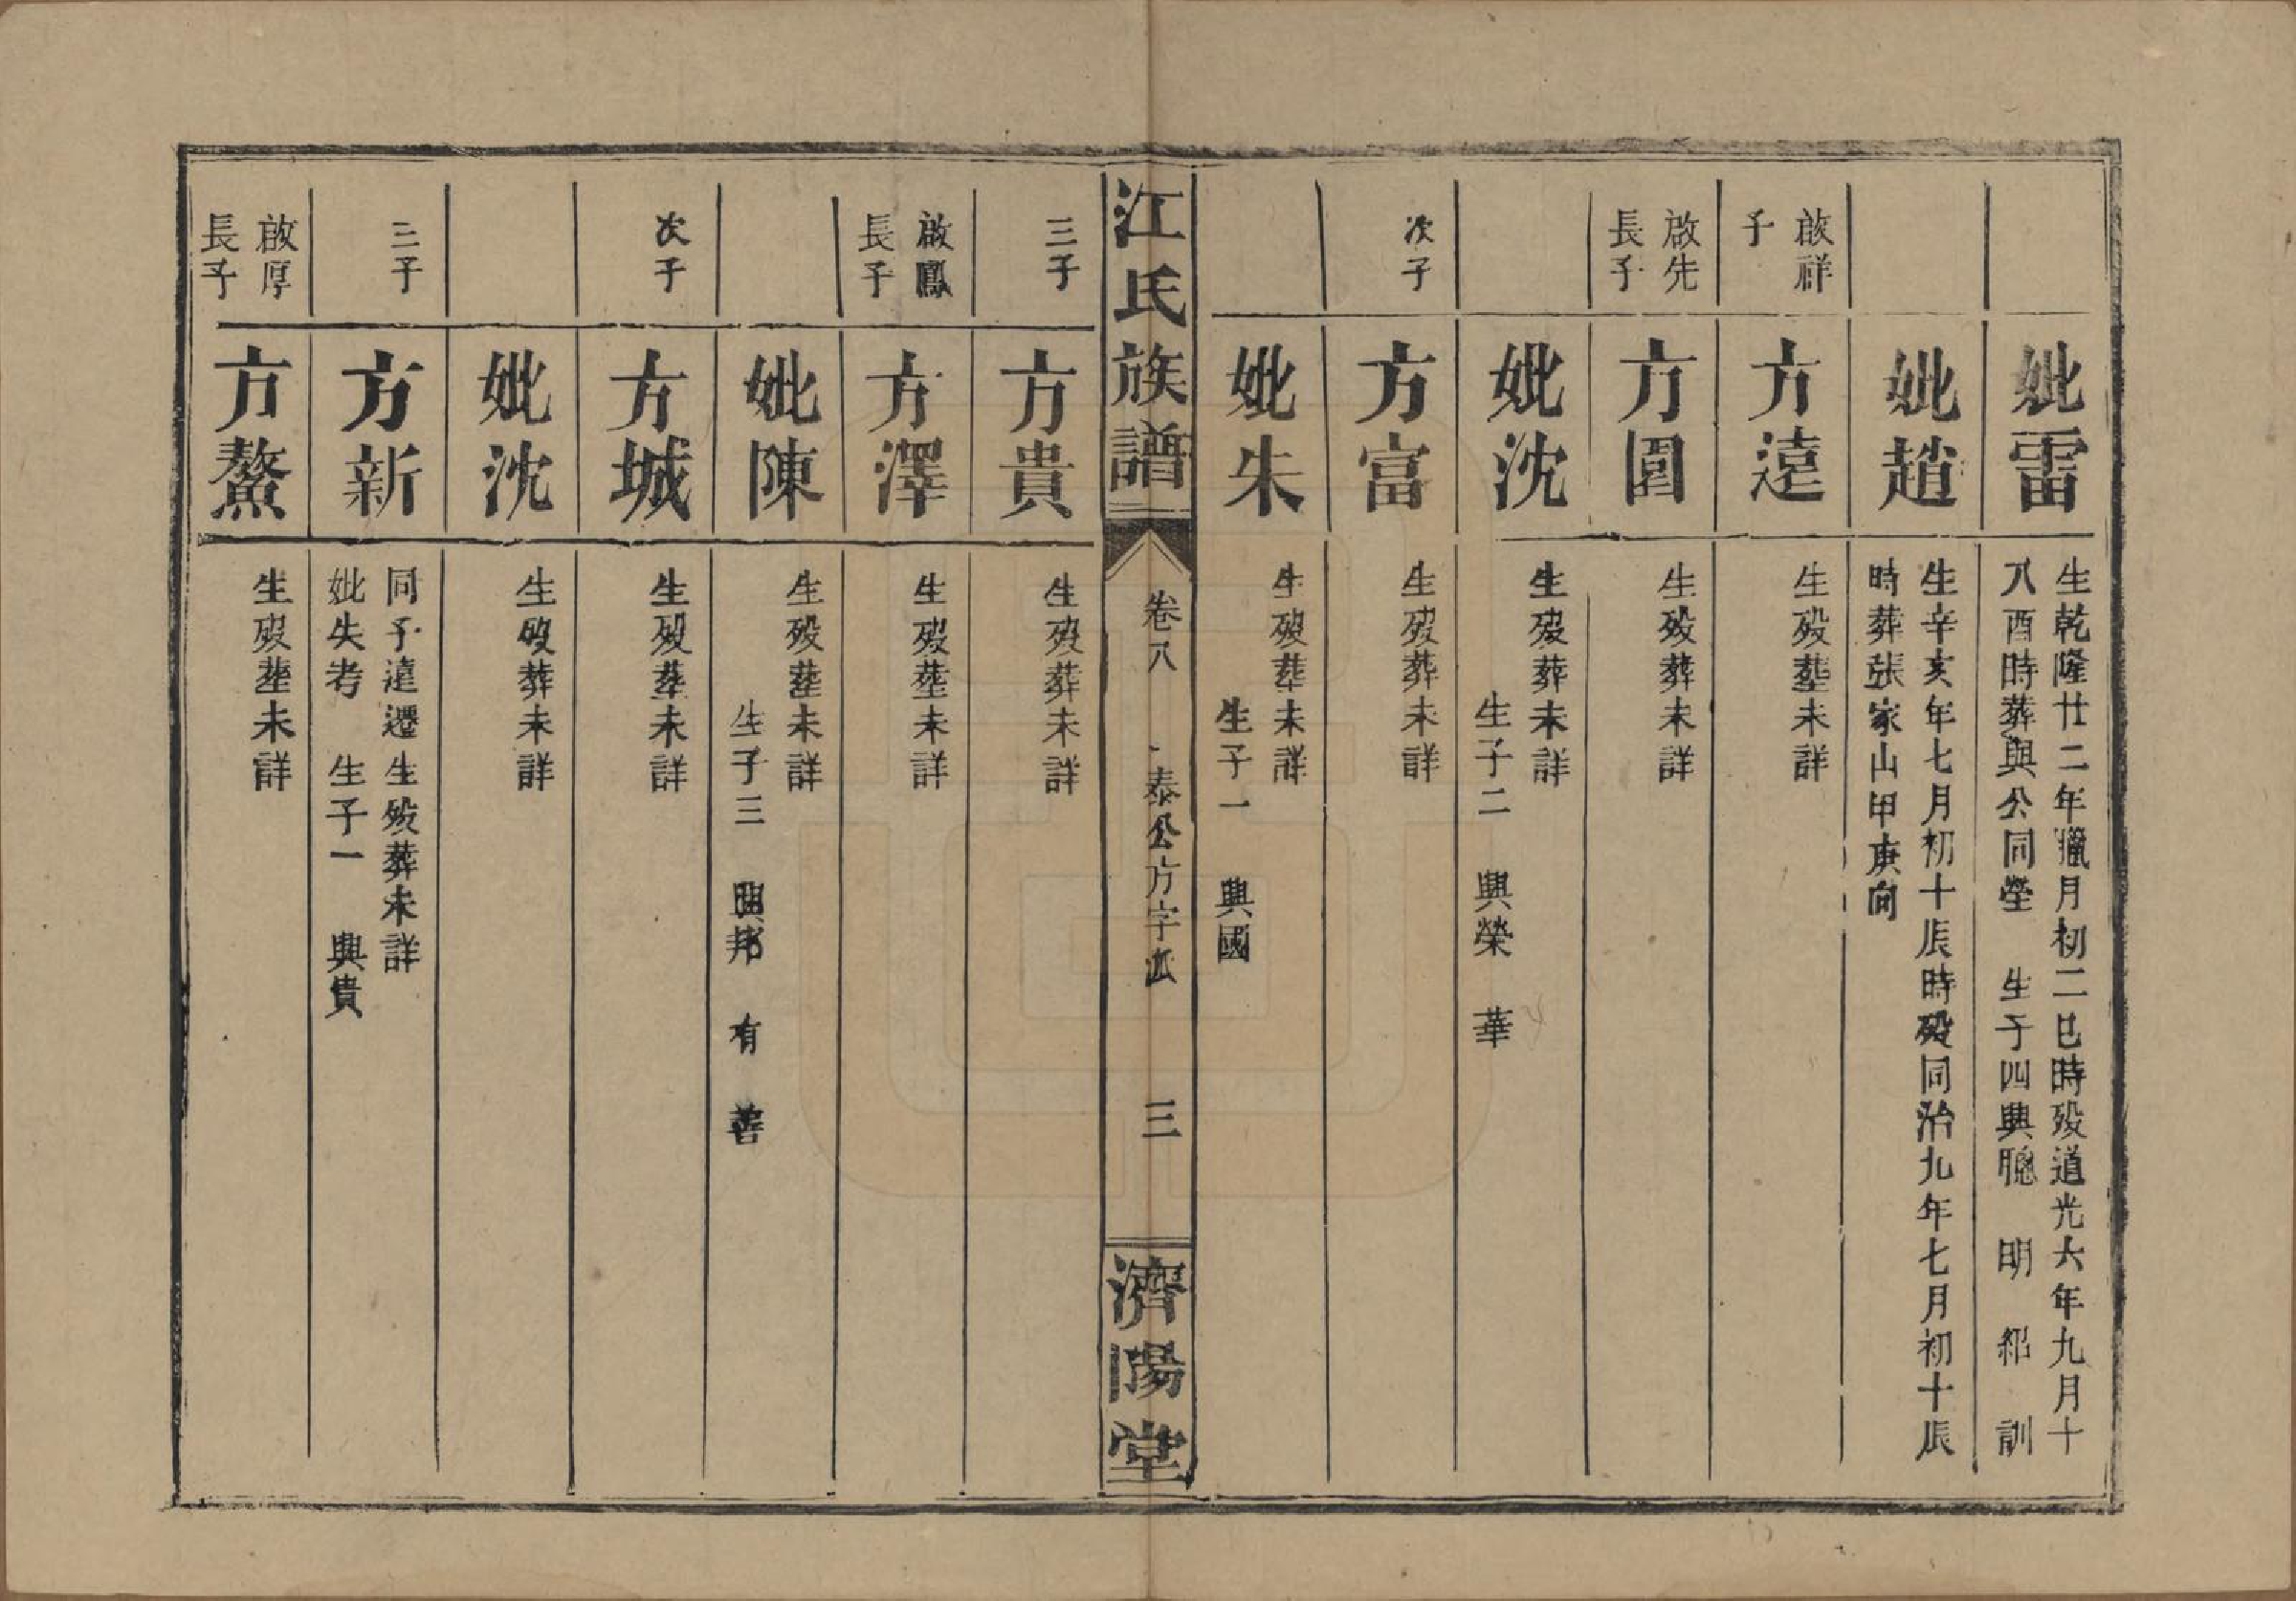 妣雷
生乾隆廿二年臘月初二巳時殁道光六年九月十
八酉時葬與公同塋 生子四興聰 明 紹 訓
妣趙
生辛亥年七月初十辰時殁同治九年七月初十辰
時葬張家山甲庚向
啟祥
子
方遠
生殁葬未詳
啟先
長子
方圓
生殁葬未詳
妣沈
生殁葬未詳
生子二 興榮 華
次子
方富
生殁葬未詳
妣朱
生殁葬未詳
生子一 興國
江氏族譜
卷八
泰公方字派
三
濟陽堂
三子
方貴
生殁葬未詳
啟鳳
長子
方澤
生殁葬未詳
妣陳
生殁葬未詳
生子三 興邦 有 善
次子
方城
生殁葬未詳
妣沈
生殁葬未詳
三子
方新
同子遠遷生殁葬未詳
妣失考 生子一 興貴
啟厚
長子
方鰲
生殁葬未詳